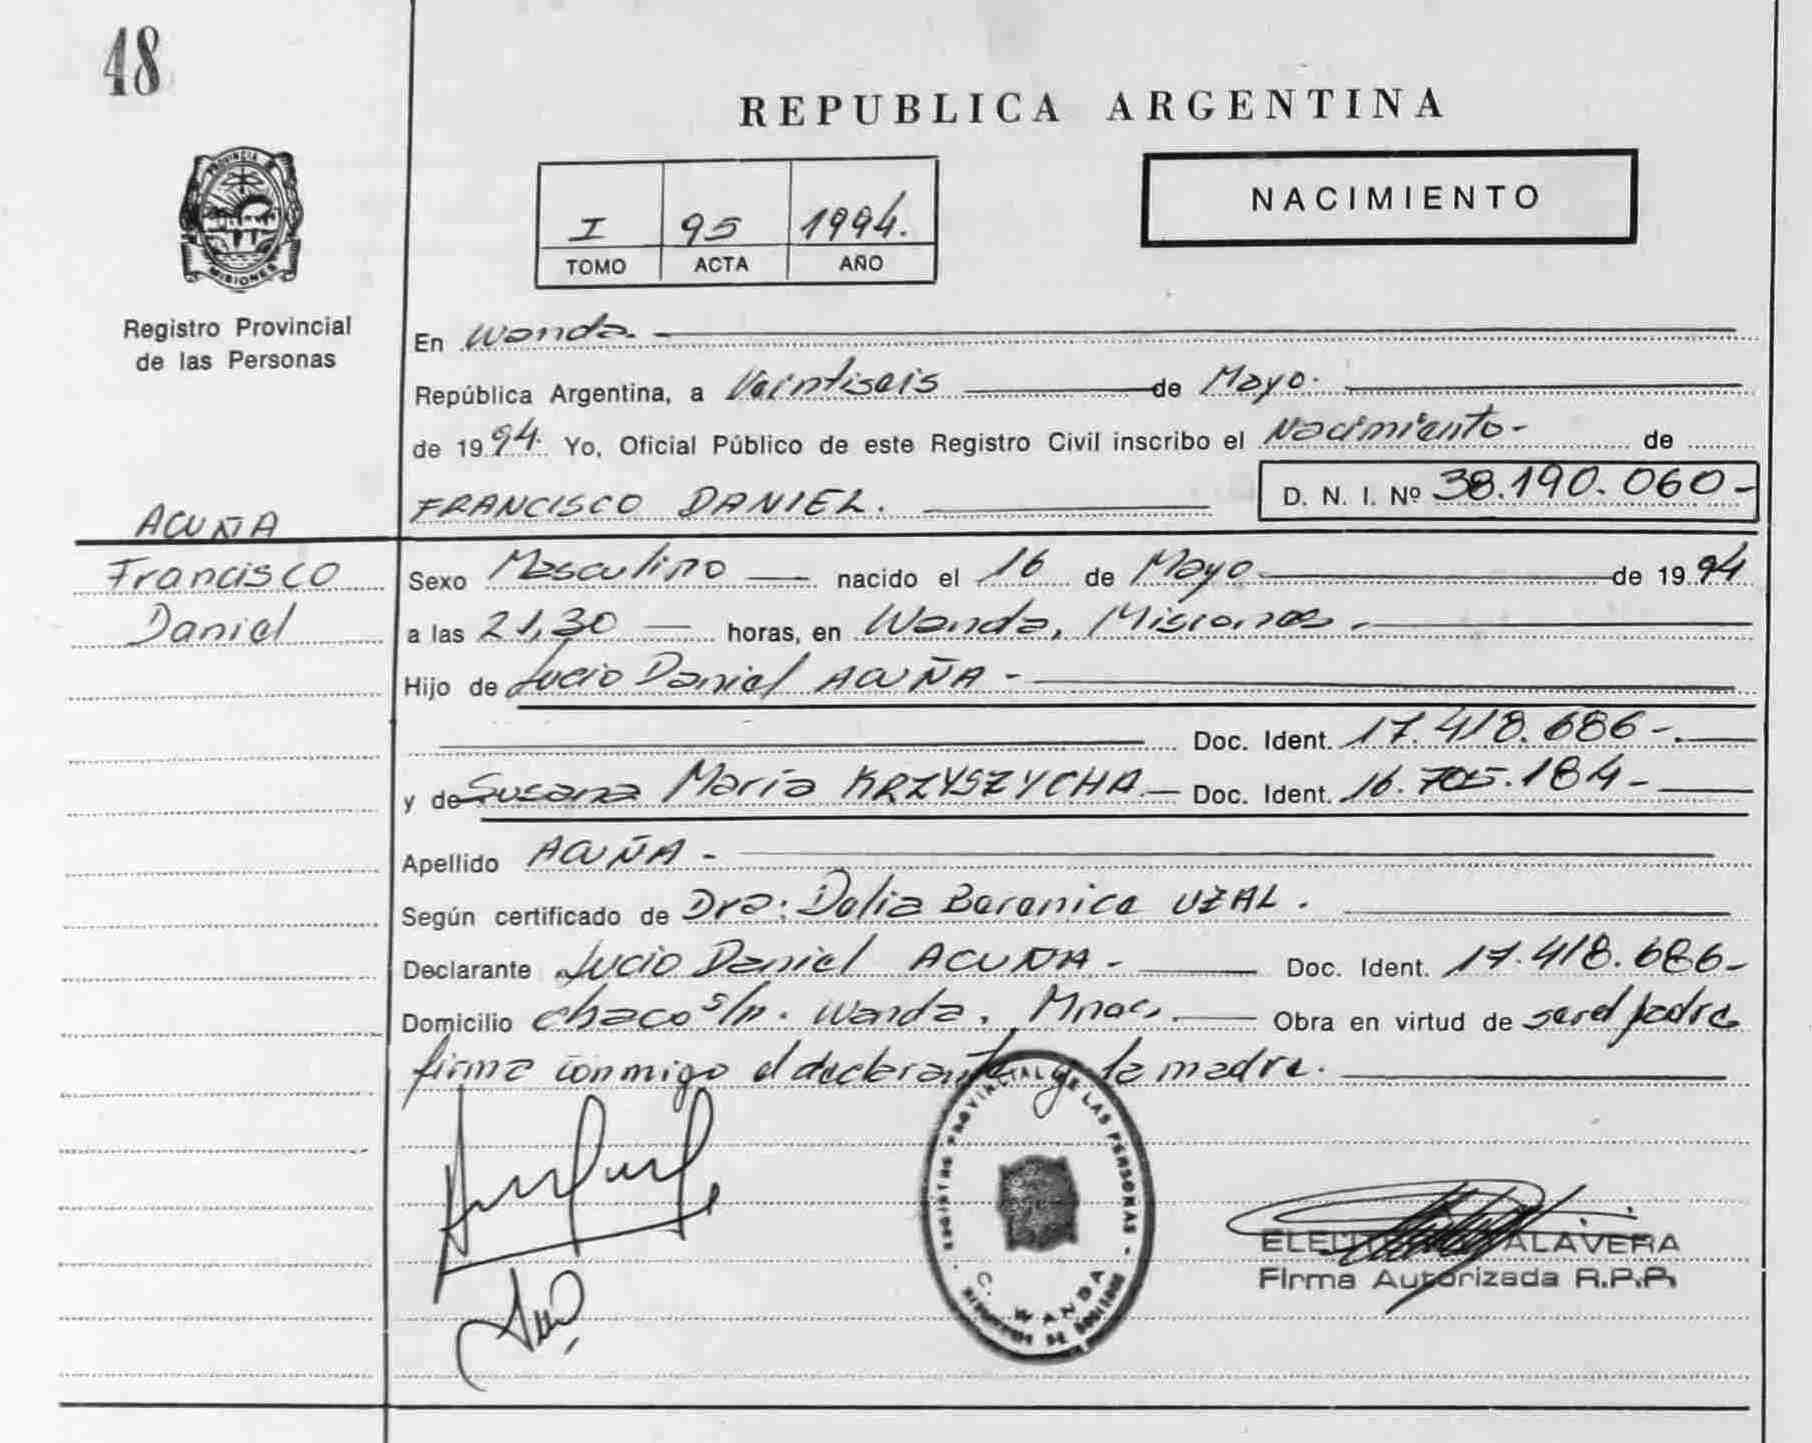 48
REPUBLICA ARGENTINA
PROVINCIA DE
MISIONES
Registro Provincial
de las Personas
NACIMIENTO
I 95 1994.
TOMO ACTA AÑO
En Wanda.
República Argentina, a Veintiseis de Mayo.
de 1994. Yo, Oficial Público de este Registro Civil inscribo el Nacimiento- de
FRANCISCO DANIEL. D. N. I. Nº 38.190.060-
ACUÑA
Francisco
Daniel
Sexo Masculino nacido el 16 de Mayo de 1994
a las 21,30 horas, en Wanda, Misiones.
Hijo de Lucio Daniel ACUÑA-
Doc. Ident. 17.418.686-.
y de Susana María KRZYSZYCHA Doc. Ident. 16.705.184-
Apellido ACUÑA-
Según certificado de Dra: Delia Berenice UZAL.
Declarante Lucio Daniel ACUÑA- Doc. Ident. 17.418.686-
Domicilio chaco s/n. Wanda, Mnes. Obra en virtud de ser el padre
firma conmigo el declarante y la madre.
REGISTRO PROVINCIAL DE LAS PERSONAS
C. WANDA
ALAVERA
Firma Autorizada R.P.P.